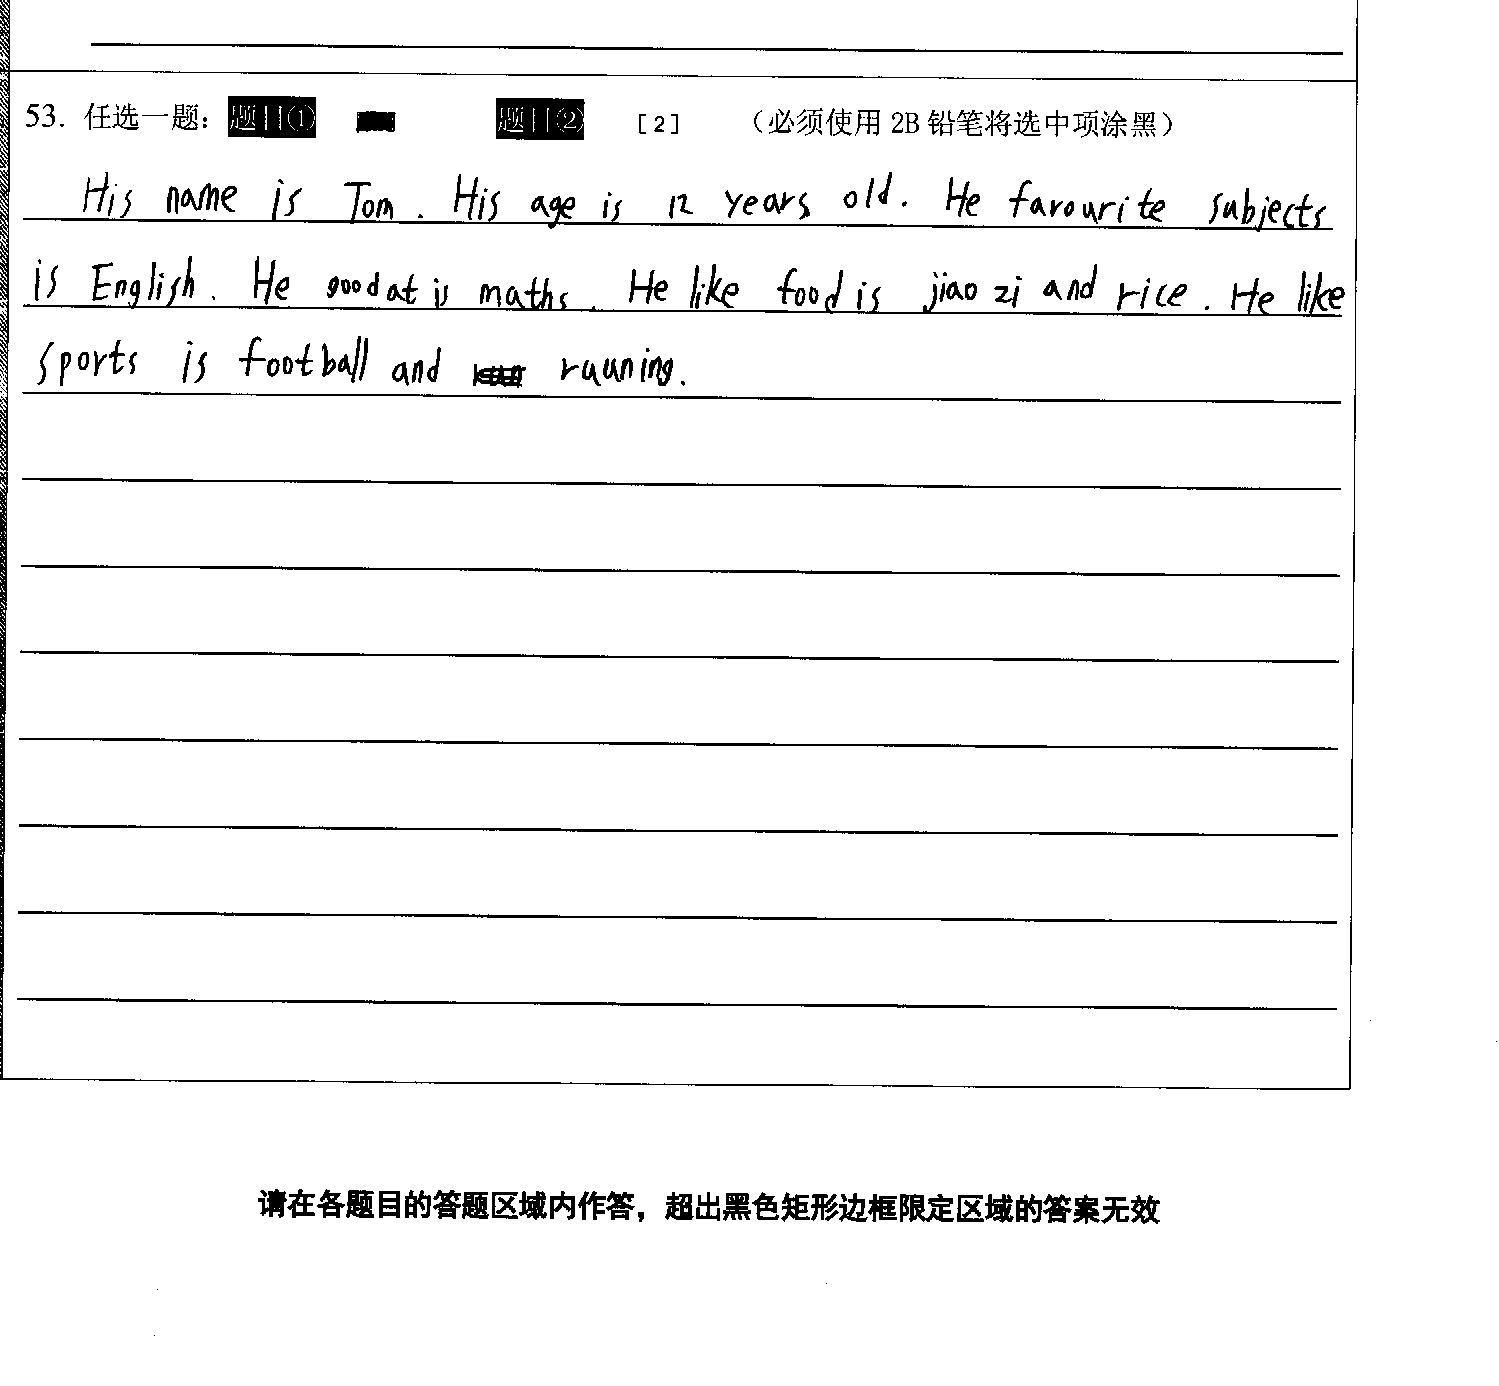 53. 任选一题: 题目① 题目② [2] (必须使用 2B 铅笔将选中项涂黑)
His name is Tom. His age is 12 years old. He favourite subjects
is English. He good at is maths. He like food is jiao zi and rice. He like
sports is football and ruuning.
请在各题目的答题区域内作答，超出黑色矩形边框限定区域的答案无效